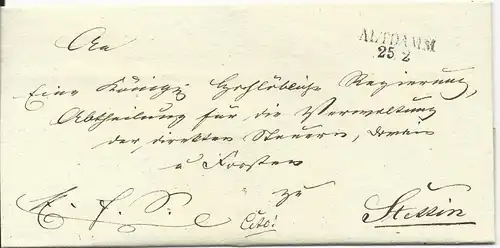 ALTDAMM
25 2
An
Eine Königl. Hochlöbliche Regierung,
Abtheilung für die Verwaltung
der direkten Steuern, Domain
u Forsten
zu
H. S.
Cito!
Stettin